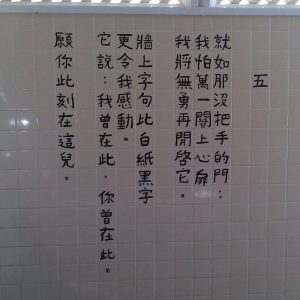 五
就如那沒把手的門：
我怕萬一關上心扉
我將無勇再開啓它。
牆上字句比白紙黑字
更令我感動。
它說：我曾在此，你曾在此。
願你此刻在這兒。